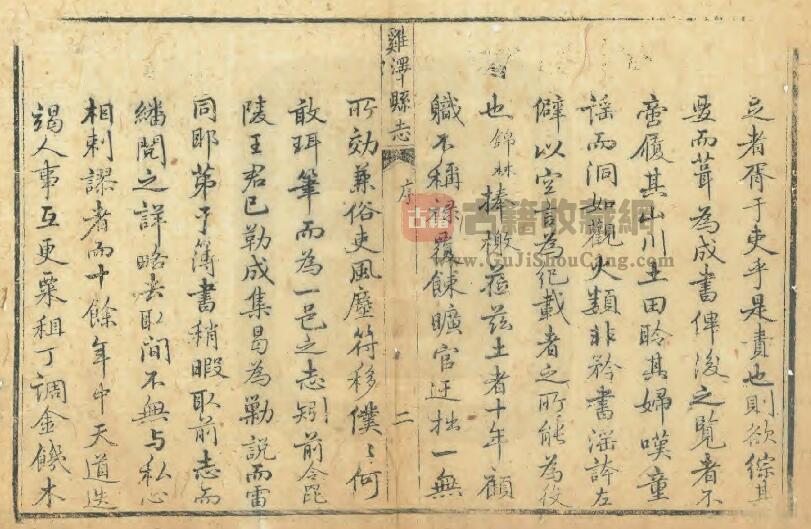 之者胥于吏乎是責也則欲綜其
要而葺為成書俾後之覽者不
啻履其山川土田聆其婦嘆童
謡而洞如觀火類非矜書滛誇左
僻以空言為紀載者之所能為役
也錦林捧檄蒞茲土者十年顧
職不稱祿覆餗曠官迂拙一無
雞澤縣志 序 二
所効兼俗吏風塵符移僕〻何
敢珥筆而為一邑之志矧前令毘
陵王君已勒成集曷為勦説而雷
同耶第予簿書稍暇取前志而
繙閱之詳略去取間不無与私心
相刺謬者而十餘年中天道迭
竭人事互更粟租丁調金饑木
古籍 古籍收藏網
www.GuJiShouCang.com